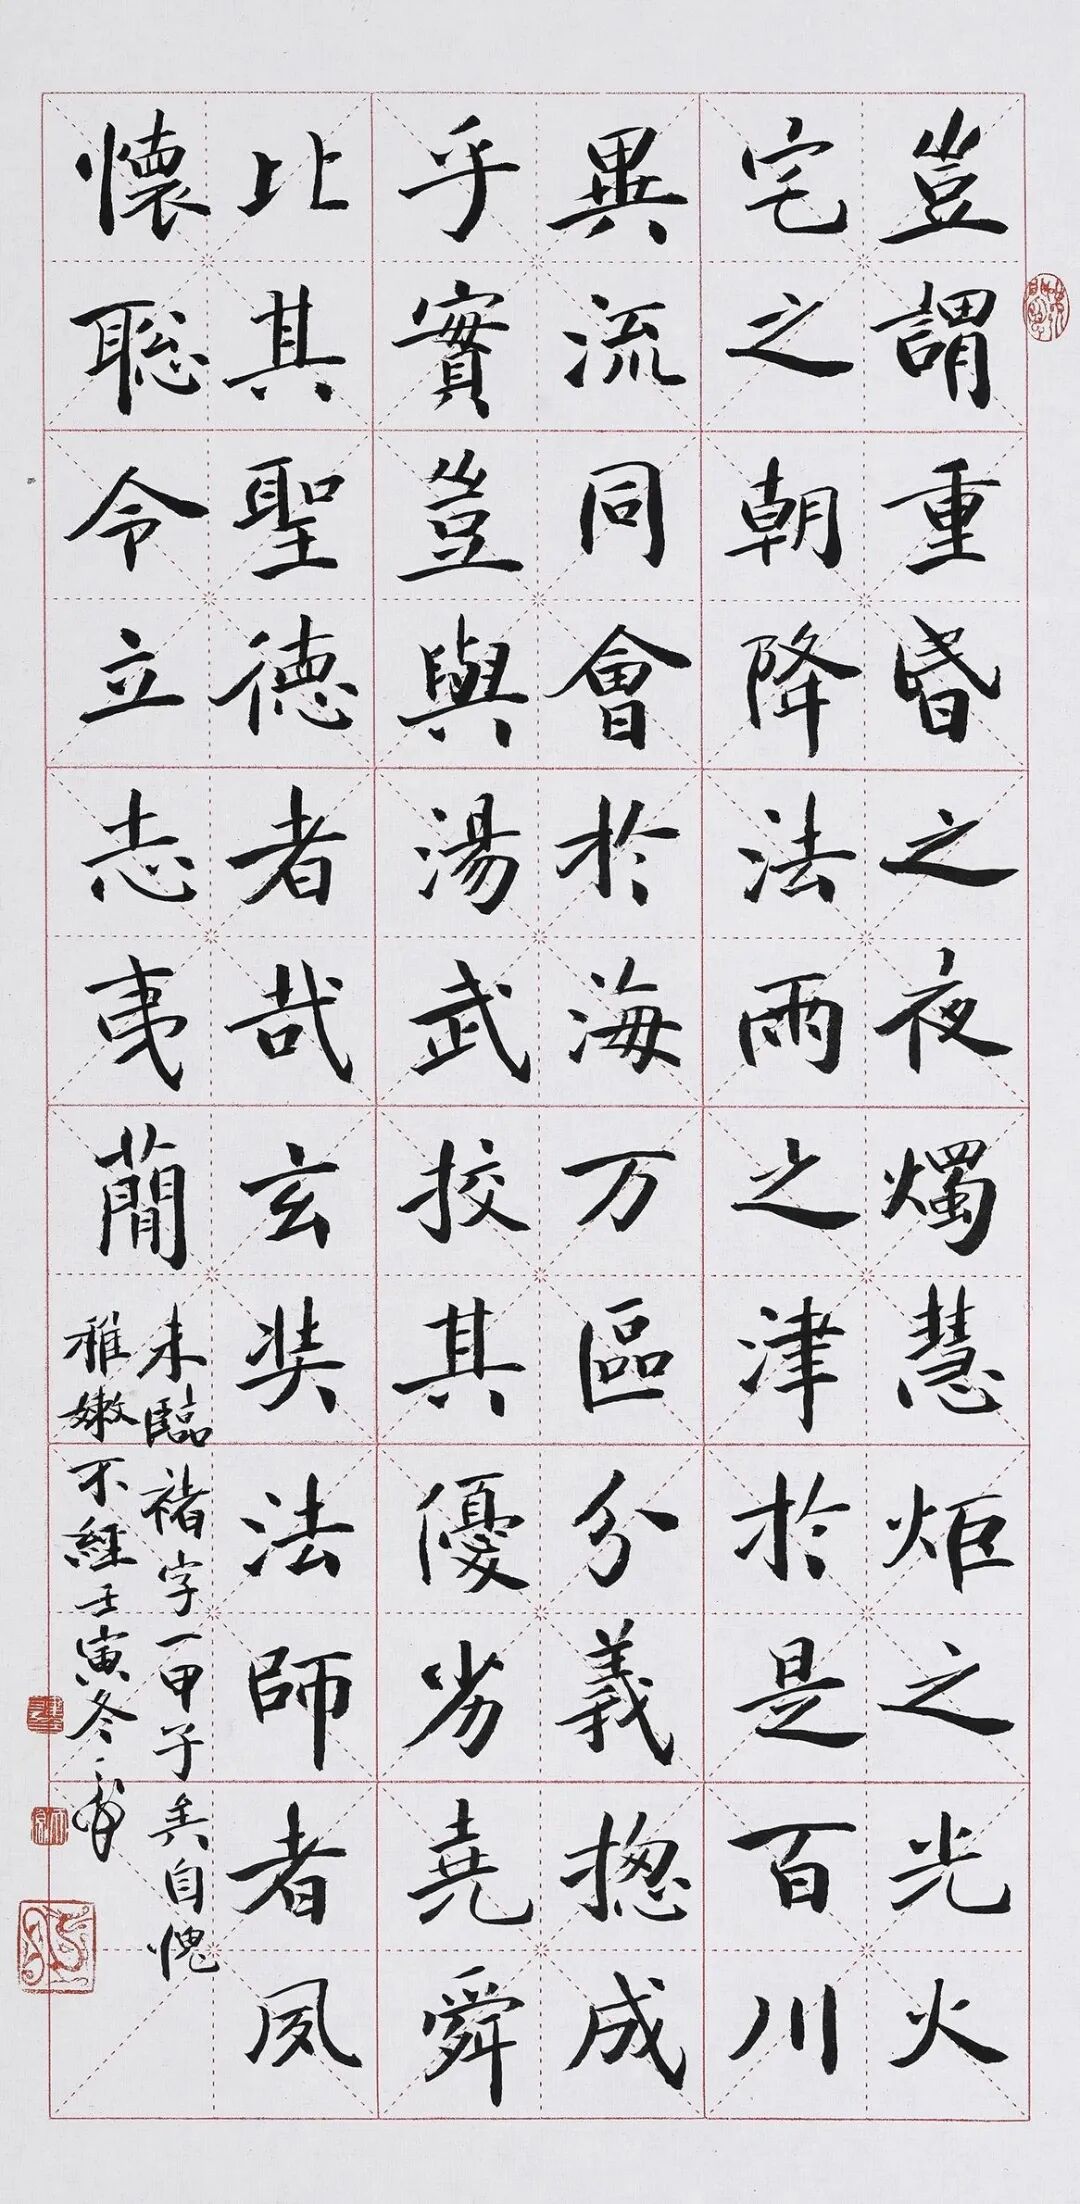 豈謂重昏之夜燭慧炬之光火
宅之朝降法雨之津於是百川
異流同會於海万區分義揔成
乎實豈與湯武挍其優劣堯舜
比其聖德者哉玄奘法師者夙
懷聡令立志夷簡
未臨褚字一甲子矣自愧
稚嫩不經壬寅冬